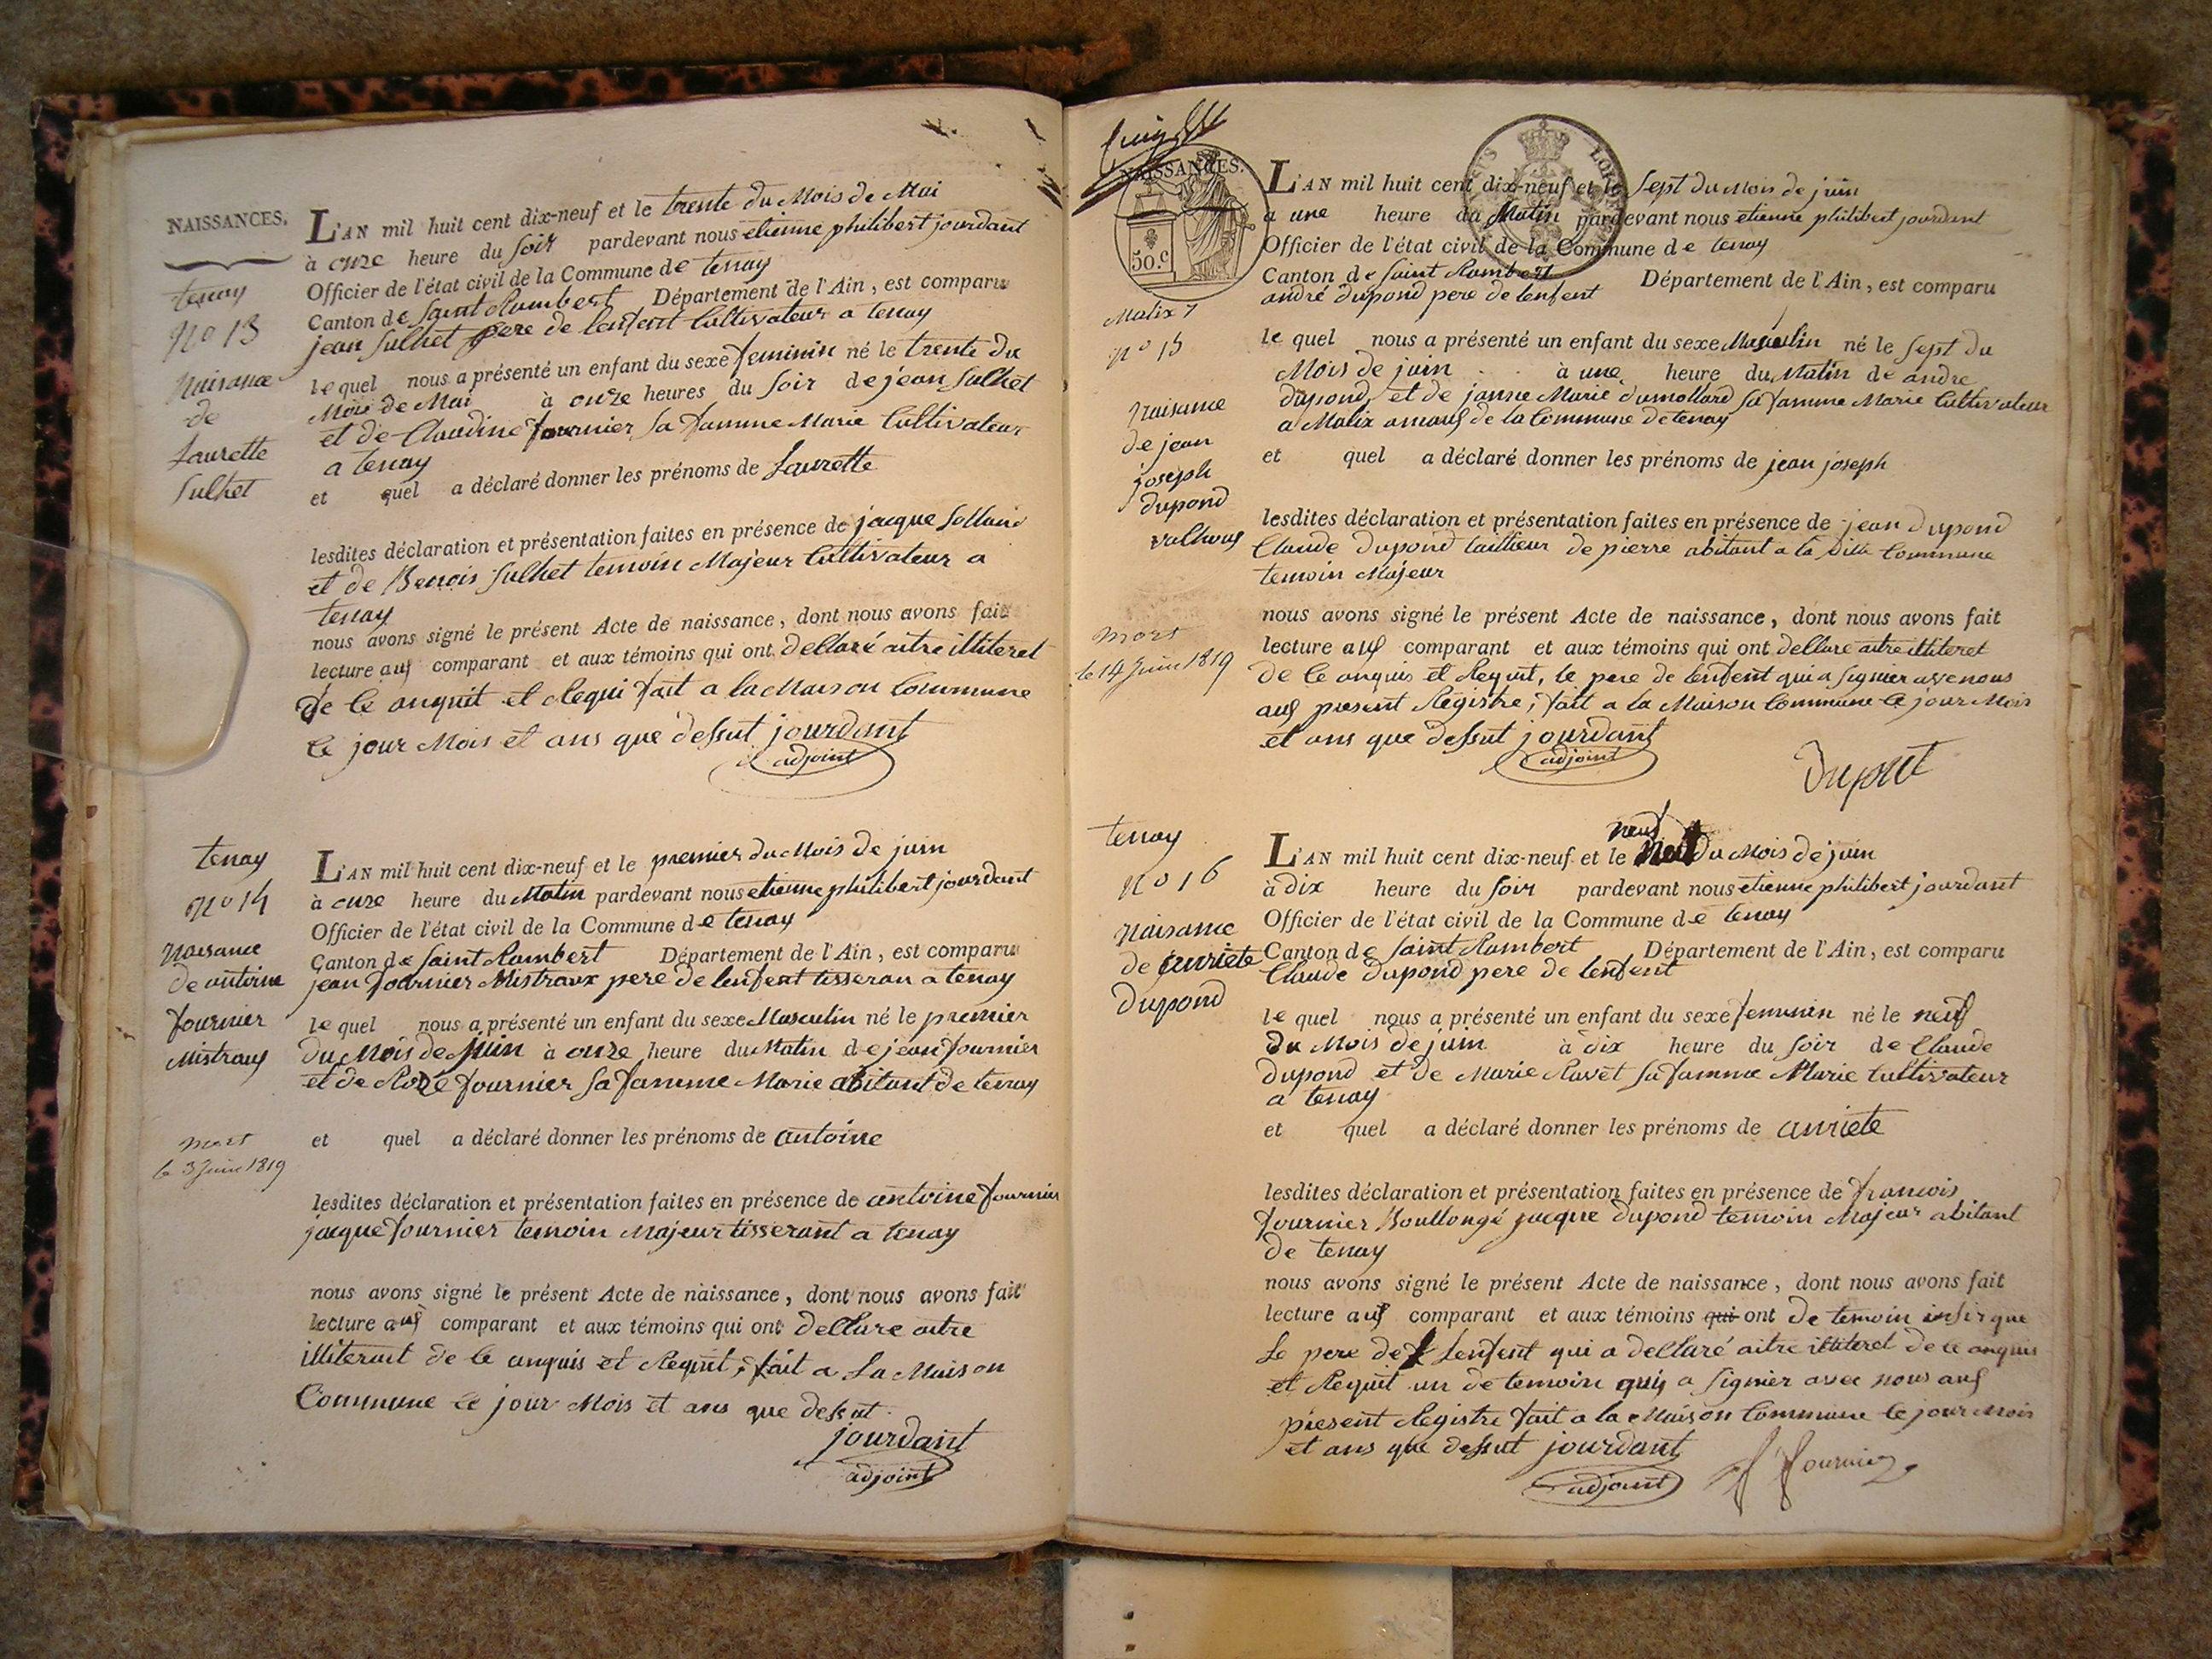 NAISSANCES.
tenay
No 13
Naisance
de
Laurette
Sulhet
L'AN mil huit cent dix-neuf et le trente du Mois de Mai
à onze heure du soir pardevant nous etienne philibert jourdant
Officier de l'état civil de la Commune de tenay
Canton de Saint Rambert Département de l'Ain, est comparu
jean Sulhet pere de lenfent Cultivateur a tenay
le quel nous a présenté un enfant du sexe feminin né le trente du
Mois de Mai à onze heures du soir de jean Sulhet
et de Claudine fournier sa famme Marie Cultivateur
a tenay
et quel a déclaré donner les prénoms de Laurette
lesdites déclaration et présentation faites en présence de jacque
et de Benois Sulhet temoin Majeur Cultivateur a
tenay
nous avons signé le présent Acte de naissance, dont nous avons fait
lecture aux comparant et aux témoins qui ont dellaré aitre illiteret
de le anquit et Requi fait a la Maison Commune
le jour Mois et ans que dessut jourdant
adjoint
tenay
No 14
Naisance
de antoine
fournier
Mistraux
mort
le 3 Juin 1819
L'AN mil huit cent dix-neuf et le premier du Mois de juin
à onze heure du Matin pardevant nous etienne philibert jourdant
Officier de l'état civil de la Commune de tenay
Canton de Saint Rambert Département de l'Ain, est comparu
jean fournier Mistraux pere de lenfent tisseran a tenay
le quel nous a présenté un enfant du sexe Masculin né le premier
du Mois de juin à onze heure du Matin de jean fournier
et de Roze fournier sa famme Marie abitant de tenay
et quel a déclaré donner les prénoms de antoine
lesdites déclaration et présentation faites en présence de antoine fournier
jacque fournier temoin Majeur tisserant a tenay
nous avons signé le présent Acte de naissance, dont nous avons fait
lecture aux comparant et aux témoins qui ont dellare aitre
illiterait de le anquis et Requit, fait a la Maison
Commune le jour Mois et ans que dessut
jourdant
adjoint
NAISSANCES.
50.c
Malix 7
No 15
Naisance
de jean
joseph
dupond
mort
le 14 Juin 1819
L'AN mil huit cent dix-neuf et le sept du Mois de juin
a une heure du Matin pardevant nous etienne philibert jourdant
Officier de l'état civil de la Commune de tenay
Canton de Saint Rambert Département de l'Ain, est comparu
andré dupond pere de lenfent
le quel nous a présenté un enfant du sexe Masculin né le sept du
Mois de juin à une heure du Matin de andre
dupond et de janne Marie dumollard sa famme Marie Cultivateur
a Malix amauf de la Commune de tenay
et quel a déclaré donner les prénoms de jean joseph
lesdites déclaration et présentation faites en présence de jean dupond
Claude dupond taillieur de pierre abitant a la dite Commune
temoin Majeur
nous avons signé le présent Acte de naissance, dont nous avons fait
lecture aux comparant et aux témoins qui ont dellare aitre illiteret
de le anquis et Requit, le pere de lenfent qui a signier avec nous
aux present Registre, fait a la Maison Commune le jour Mois
et ans que dessut jourdant
adjoint
Duport
tenay
No 16
Naisance
de anriete
dupond
neuf
L'AN mil huit cent dix-neuf et le du Mois de juin
à dix heure du soir pardevant nous etienne philibert jourdant
Officier de l'état civil de la Commune de tenay
Canton de Saint Rambert Département de l'Ain, est comparu
Claude dupond pere de lenfent
le quel nous a présenté un enfant du sexe femınin né le neuf
du Mois de juin à dix heure du soir de Claude
dupond et de Marie Ravet sa famme Marie Cultivateur
a tenay
et quel a déclaré donner les prénoms de anriete
lesdites déclaration et présentation faites en présence de francois
fournier Boullongé jacque dupond temoin Majeur abitant
de tenay
nous avons signé le présent Acte de naissance, dont nous avons fait
lecture aux comparant et aux témoins qui ont de temoin insir que
le pere de lenfent qui a dellaré aitre illiteret de le anquis
et Requit un de temoin quy a signier avec nous aux
present Registre fait a la Maison Commune le jour Mois
et ans que dessut jourdant
adjoint
f fournier